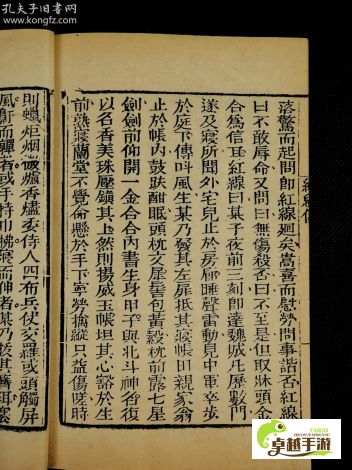 孔夫子旧书网
www.kongfz.com
紅線傳
落驚而起問即紅線迴矣嵩喜而慰勞問事諧否紅線
曰不敢辱命又問曰無傷殺否曰不至是但取牀頭金
合為信耳紅線曰某子夜前三刻即達魏城凡歷數門
遂及寢所聞外宅兒止於房廊睡聲雷動見中軍卒步
於庭下傳叫風生某乃發其左扉抵其寢帳田親家翁
止於帳內鼓趺酣眠頭枕文犀髻包黃縠枕前露七星
劍劍前仰開一金合合內書生身甲子與北斗神名復
以名香美珠壓鎮其上然則揚威玉帳坦其心豁於生
前熟寢蘭堂不覺命懸於手下寧勞擒縱只益傷嗟時
則蠟炬烟微爐香燼委侍人四布兵仗交羅或頭觸屏
風鼾而嚲者或手持巾拂寢而伸者某乃拔其簪珥
卓越手游